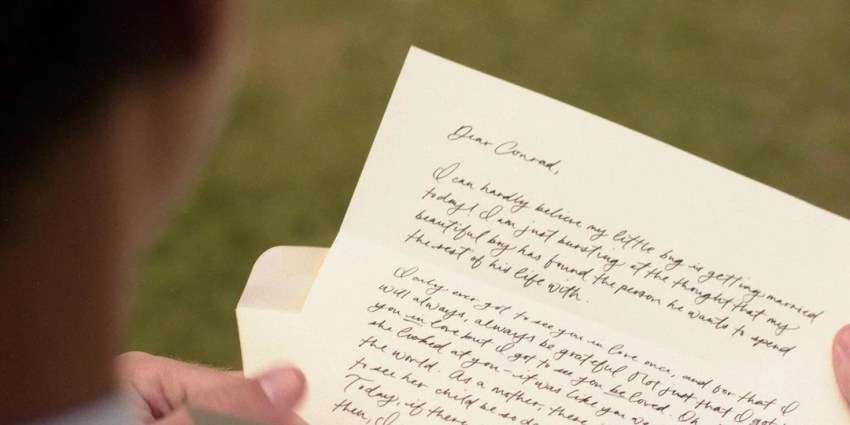 Dear Conrad,
I can hardly believe my little boy is getting married
today! I am just bursting at the thought that my
beautiful boy has found the person he wants to spend
the rest of his life with.
I only ever got to see you in love once, and for that I
will always, always be grateful. Not just that I got
you in love but I got to see you be loved. Oh
she looked at you - it was like you
the world. As a mother, there
to see her child be so
Today, if there
then, I